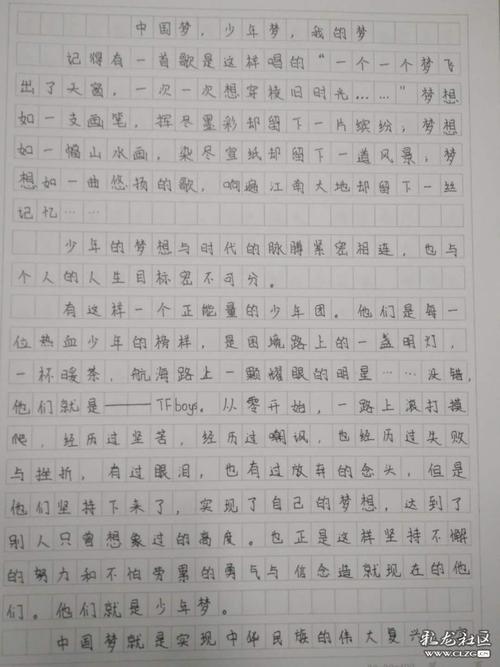 中国梦，少年梦，我的梦
记得有一首歌是这样唱的“一个一个梦飞
出了天窗，一次一次想穿梭旧时光……”梦想
如一支画笔，挥尽墨彩却留下一片缤纷；梦想
如一幅山水画，染尽宣纸却留下一道风景；梦
想如一曲悠扬的歌，响遍江南大地却留下一丝
记忆……
少年的梦想与时代的脉膊紧密相连，也与
个人的人生目标密不可分。
有这样一个正能量的少年团。他们是每一
位热血少年的榜样，是困境路上的一盏明灯，
一杯暖茶，航海路上一颗耀眼的明星……没错，
他们就是——TFboys。从零开始，一路上滚打摸
爬，经历过坚苦，经历过嘲讽，也经历过失败
与挫折，有过眼泪，也有过放弃的念头，但是
他们坚持下来了，实现了自己的梦想，达到了
别人只曾想象过的高度。也正是这样坚持不懈
的努力和不怕劳累的勇气与信念造就现在的他
们。他们就是少年梦。
中国梦就是实现中华民族的伟大复兴
化龙社区
WWW.CLZG.CN